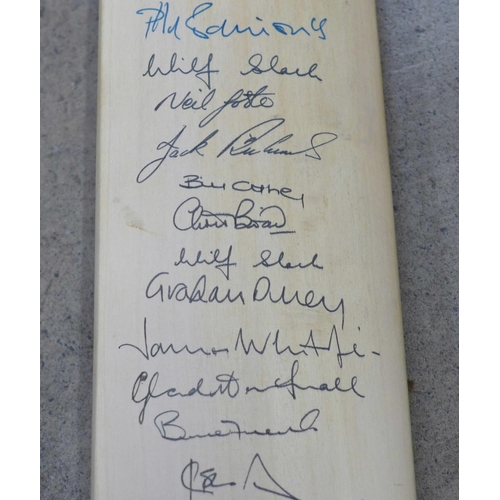 Phil Edmonds
Wilf Slack
Neil Foster
Jack Richards
Bill Athey
Chris Broad
Wilf Slack
Graham Dilley
James Whitaker
Gladstone Small
Bruce French